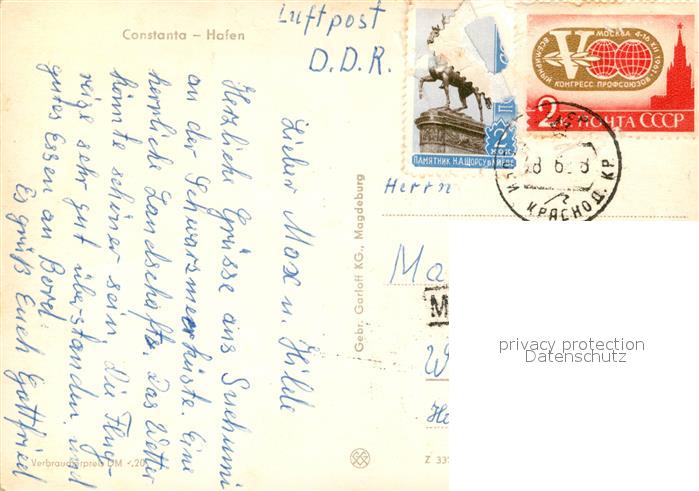 Constanta – Hafen
Luftpost
D.D.R.
Lieber Max u. Hilde
Herzliche Grüsse aus Suchumi
an der Schwarzmeerküste. Eine
herrliche Landschaft. Das Wetter
könnte schöner sein. Die Flug-
reise sehr gut überstanden und
gutes Essen an Bord
Es grüßt Euch Gottfried
Verbraucherpreis DM -.20
Gebr. Garloff KG., Magdeburg
Z 33
ПАМЯТНИК Н.А.ЩОРСУ в КИЕВЕ
2 КОП.
МОСКВА 4-16 XII 1961
ВСЕМИРНЫЙ КОНГРЕСС ПРОФСОЮЗОВ
V
2 К ПОЧТА СССР
КРАСНОД. КР.
Herrn
Ma
M
W
He
privacy protection
Datenschutz